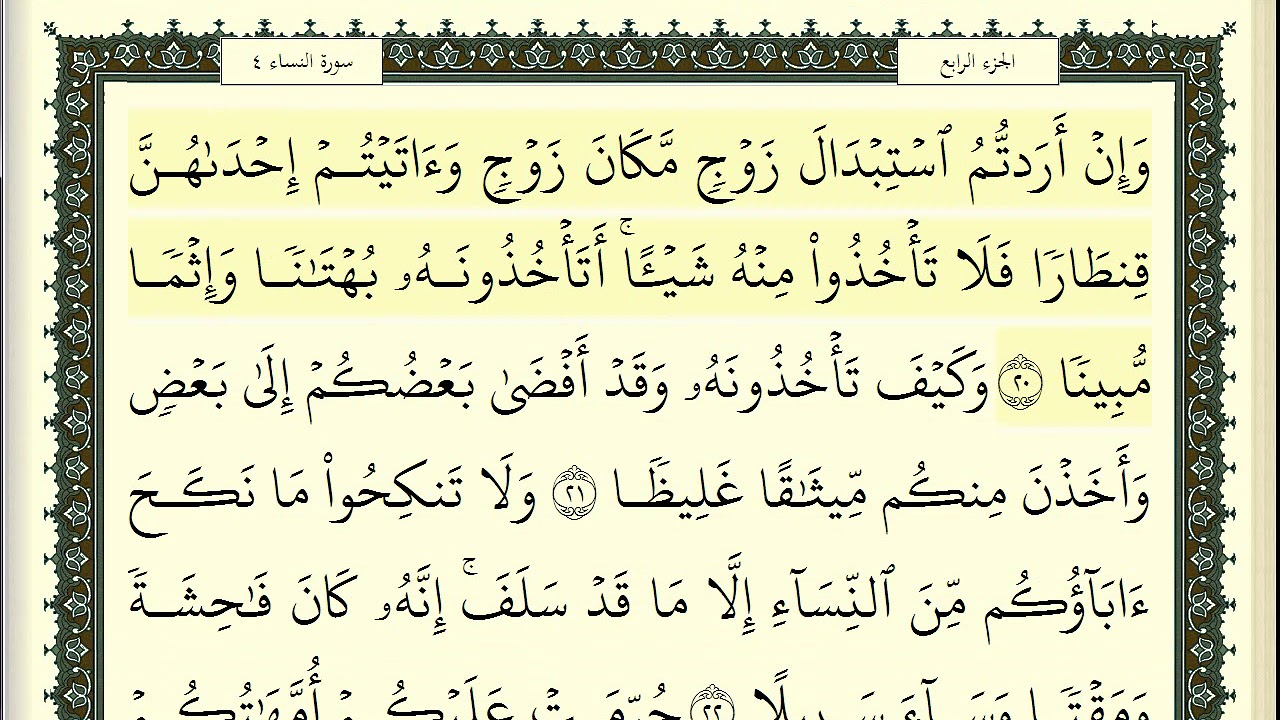 الجزء الرابع
سورة النساء ٤
وَإِنۡ أَرَدتُّمُ ٱسۡتِبۡدَالَ زَوۡجٖ مَّكَانَ زَوۡجٖ وَءَاتَيۡتُمۡ إِحۡدَىٰهُنَّ
قِنطَارٗا فَلَا تَأۡخُذُواْ مِنۡهُ شَيۡـًٔاۚ أَتَأۡخُذُونَهُۥ بُهۡتَٰنٗا وَإِثۡمٗا
مُّبِينٗا ٢٠ وَكَيۡفَ تَأۡخُذُونَهُۥ وَقَدۡ أَفۡضَىٰ بَعۡضُكُمۡ إِلَىٰ بَعۡضٖ
وَأَخَذۡنَ مِنكُم مِّيثَٰقًا غَلِيظٗا ٢١ وَلَا تَنكِحُواْ مَا نَكَحَ
ءَابَآؤُكُم مِّنَ ٱلنِّسَآءِ إِلَّا مَا قَدۡ سَلَفَۚ إِنَّهُۥ كَانَ فَٰحِشَةٗ
وَمَقۡتٗا وَسَآءَ سَبِيلًا ٢٢ حُرِّمَتۡ عَلَيۡكُمۡ أُمَّهَٰتُكُمۡ